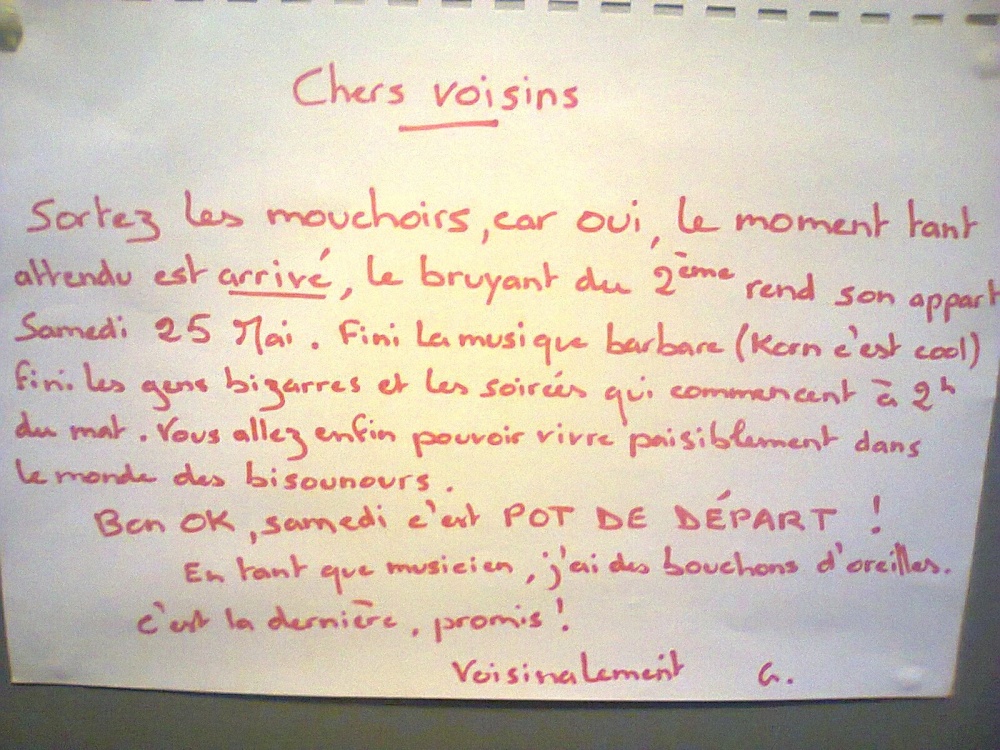 Chers voisins
Sortez les mouchoirs, car oui, le moment tant
attendu est arrivé, le bruyant du 2ème rend son appart
Samedi 25 Mai. Fini la musique barbare (Korn c'est cool)
fini les gens bizarres et les soirées qui commencent à 2h
du mat. Vous allez enfin pouvoir vivre paisiblement dans
le monde des bisounours.
Bon OK, samedi c'est POT DE DÉPART !
En tant que musicien, j'ai des bouchons d'oreilles.
c'est la dernière, promis !
Voisinalement G.